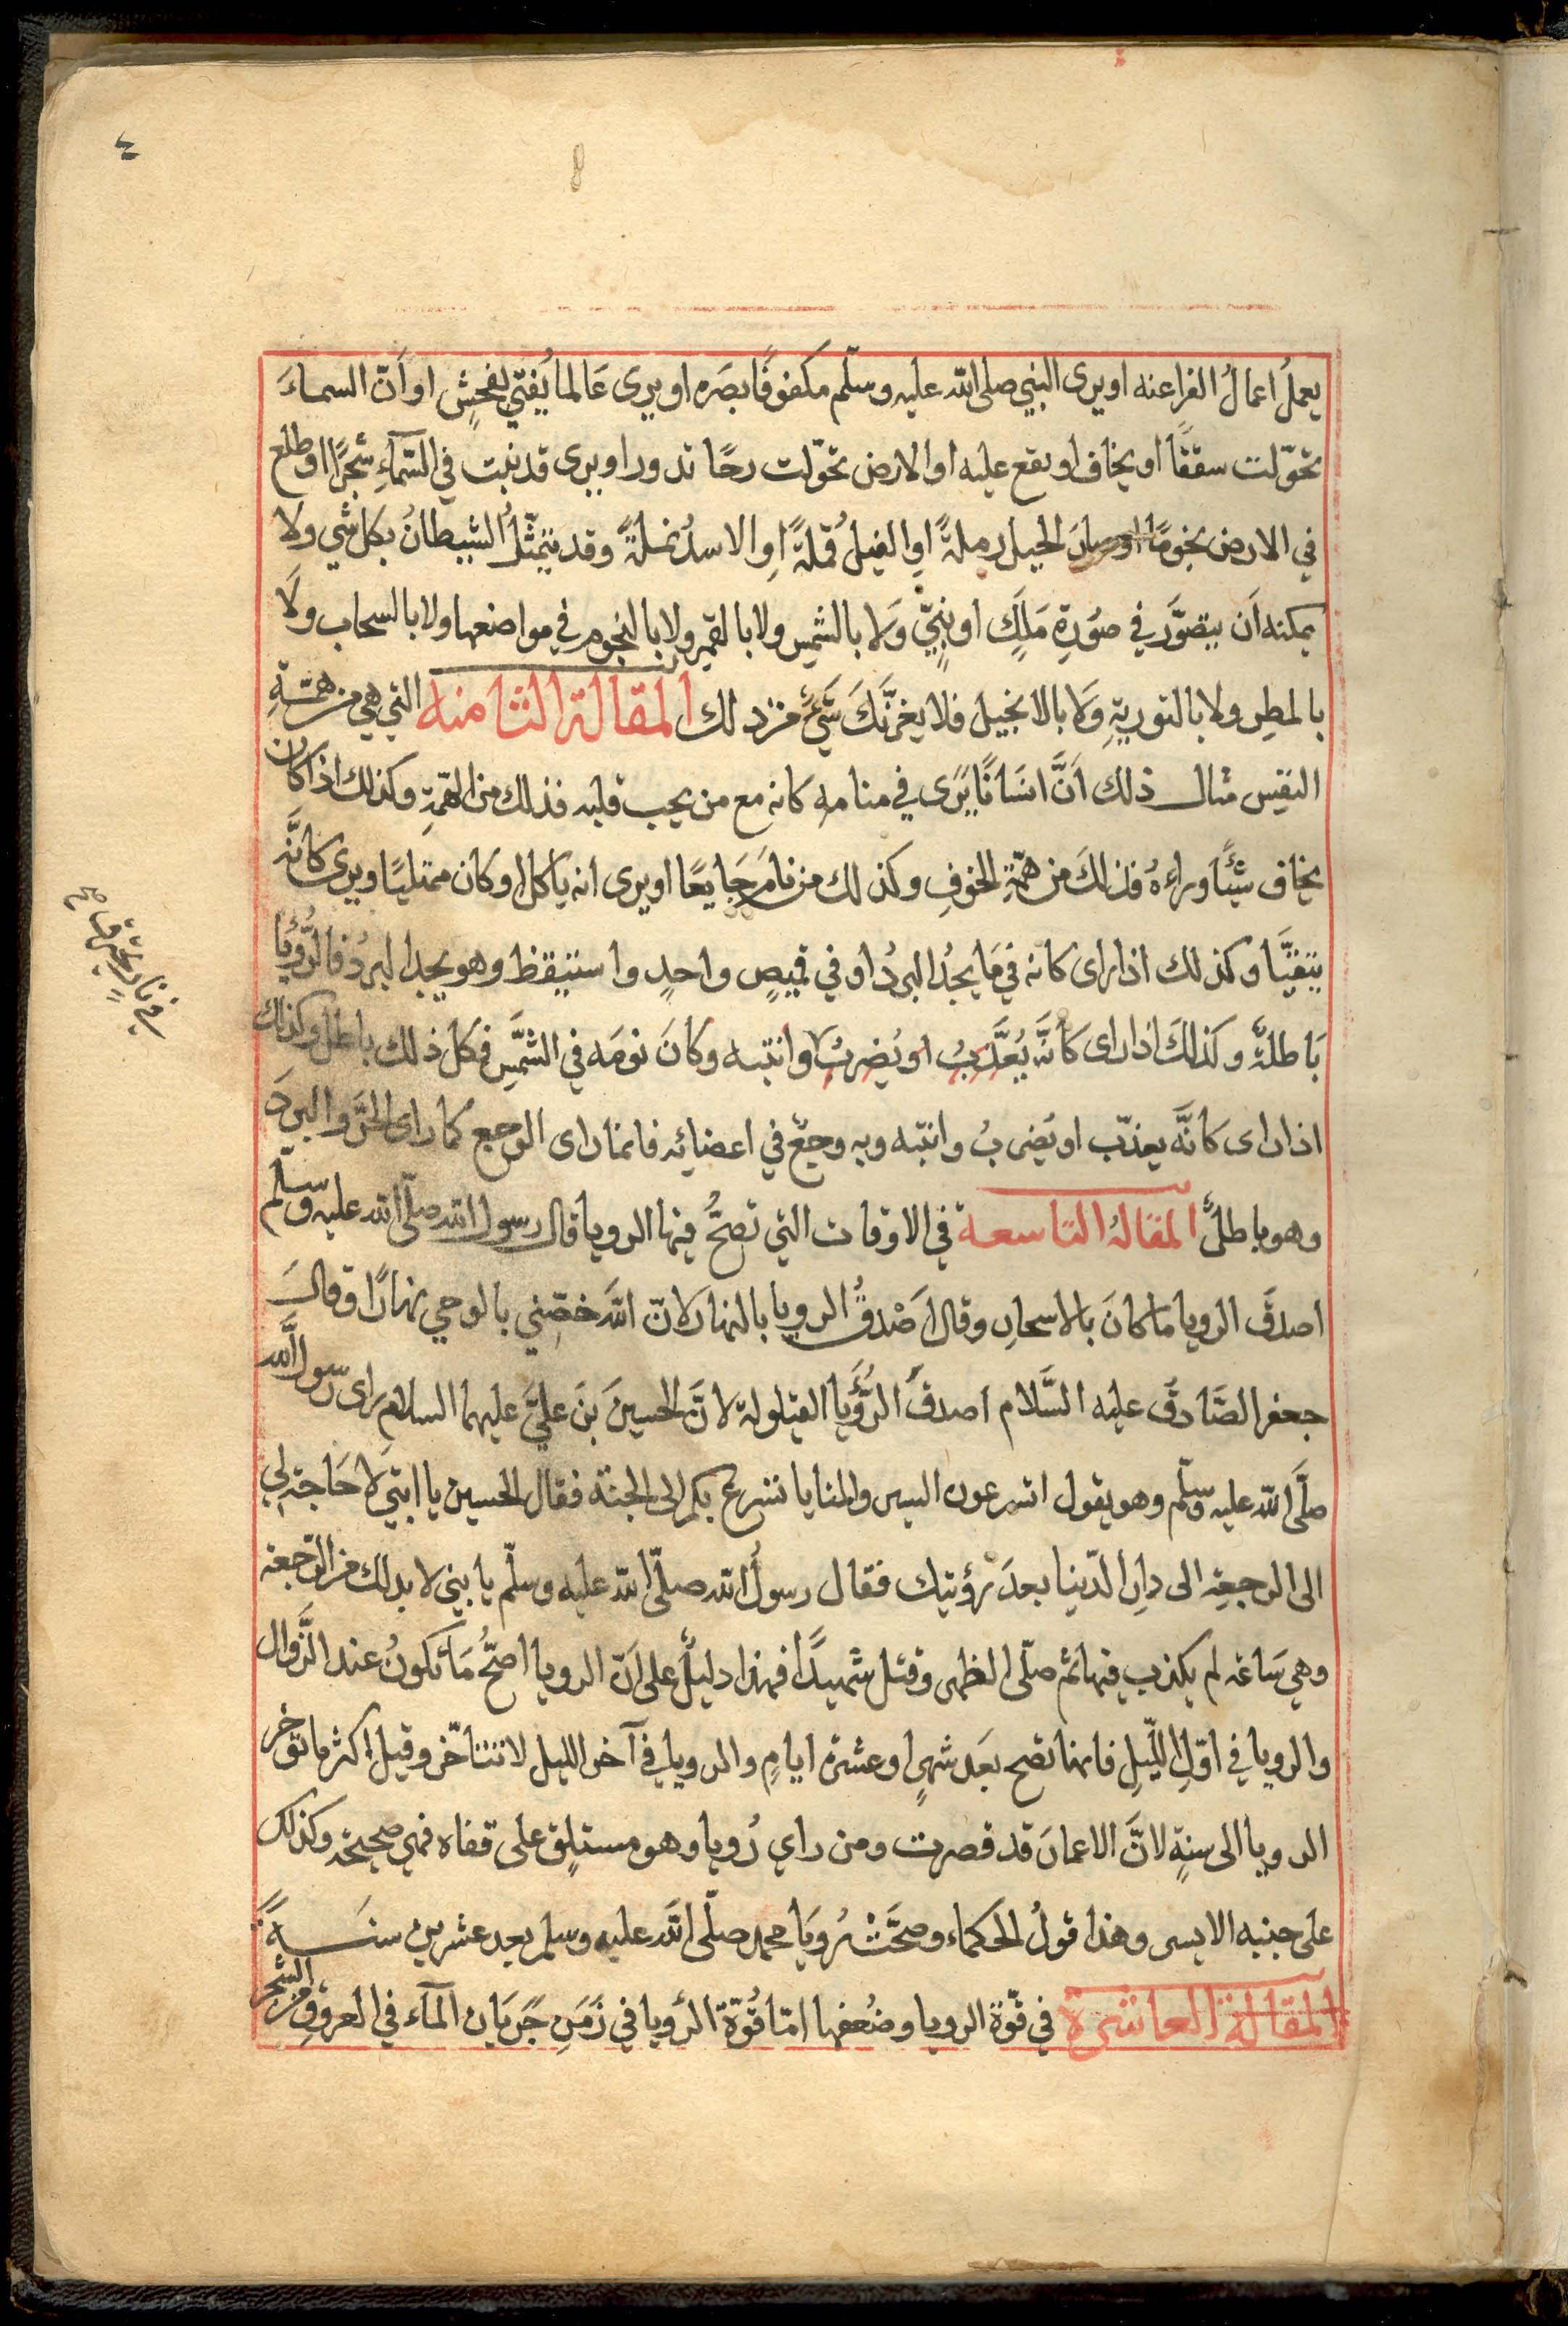 ٤
يعملُ اعمالُ الفراعنه او يرى النبي صلى الله عليه وسلّم مكفوفًا بصَره او يرى عَالما يُفتي بفحِشٍ او اَنّ السماءَ
تحوّلت سقفًا او يخاف او يقع عليه او الارض تحوّلت رحًا تدور او يرى قد نبت في السّمآءِ شجرًا او طلع
في الارض نجومًا او صارَ الجبل رملةً اوِ الفيلُ قُملةً اوِ الاسدُ نملةً وقد يتمثّلُ الشيطانُ بكل شي ولا
يمكنه اَن يتصوَّر في صوُرةِ مَلَكٍ او نبيٍّ وَلا بالشمِس ولا بالقمِر ولا بالنجوم في مواضعها ولا بالسحاب ولَا
بالمطِر ولا بالتوريةِ وَلا بالانجيل فلا يغرنَّكَ شَئٌ من ذلك المقالة الثامنه التي هي من همّةِ
النفِس مثال ذلك اَنَّ انسَانًا يَرى في منامهِ كانه مع من يحب قلبه فذلك من الهمّةِ وكذلك اذا كان
يخاف شيئًا وراءهُ فذلكَ من همّةِ الخوفِ وكذلك من نامَ جَايعًا او يرى انه ياكل او كان ممتليًا ويرى كانَّه
يتقيَّا وكذلك اذا راى كانه في مَا يجدُ البردُ او في قميصٍ واحدٍ واستيقظ وهو يجد البردُ فالرُّؤيا
بَاطلةٌ وكذلكَ اذا راى كانَّه يُعَذَّبُ او يُضربُ وانتبه وكانَ نومَه في الشَّمِس فكل ذلك باطل وكذلك
اذا راى كانَّه يعذّب او يُضربُ وانتبه وبه وجعٌ في اعضائه فانما راى الوجع كما راى الحَرَّ والبردَ
وهو باطلٌ المقالهُ التاسعة في الاوقات التي تصحُّ فيها الرويا قال رسول الله صلّى الله عليه وسلم
اصدقَ الرويا ما كانَ بالاسحارِ وقال اَصْدقُ الرويا بالنهار لانّ اللهَ خصّني بالوحي نهارًا وقالَ
جعفر الصَّادقَ عليه السَّلام اصدقَ الرُّؤَيا القيلولة لانَّ الحسينَ بنَ عليَّ عليهما السلامِ راى رسول اللَّه
صلَّى الله عليه وسلّم وهو يقول اتسرعون السير والمنايا تسرع بكم الى الجنّة فقال الحسين يا ابتي لَا حَاجة لي
الى الرجعِة الى دارِ الدّنيا بعدَ رُؤيتك فقال رسولُ الله صلّى الله عليه وسلّم يا بني لا بد لك من الرّجعة
وهي سَاعة لم يكذب فيها ثم صلّى الظهر وقتل شهيدًا فهذا دليلٌ على اَنّ الرويا اصحُّ مَا تكونُ عند الزَّوال
والرويا في اوّلِ اللّيلِ فانها تصح بعَد شهرٍ او عشرة ايامٍ والرويا في آخر الليل لا تتاخّر وقيل اكثر ما تؤخر
الرويا الى سنةٍ لانَّ الاعمارَ قد قصرت ومن راي رُويا وهو مستلٍق على قفاه فهي صحيحة وكذلك
على جنبه الايسر وهذا قولُ الحكماء وصحَّتْ رُويَا محمد صلّى الله عليه وسلم بعد عشرين سنَةً
المقالة العاشرة في قوّة الرويا وضُعفها امّا قُوّة الرؤيا في زَمَنِ جَريَان المآء في العروقِ من الشجر